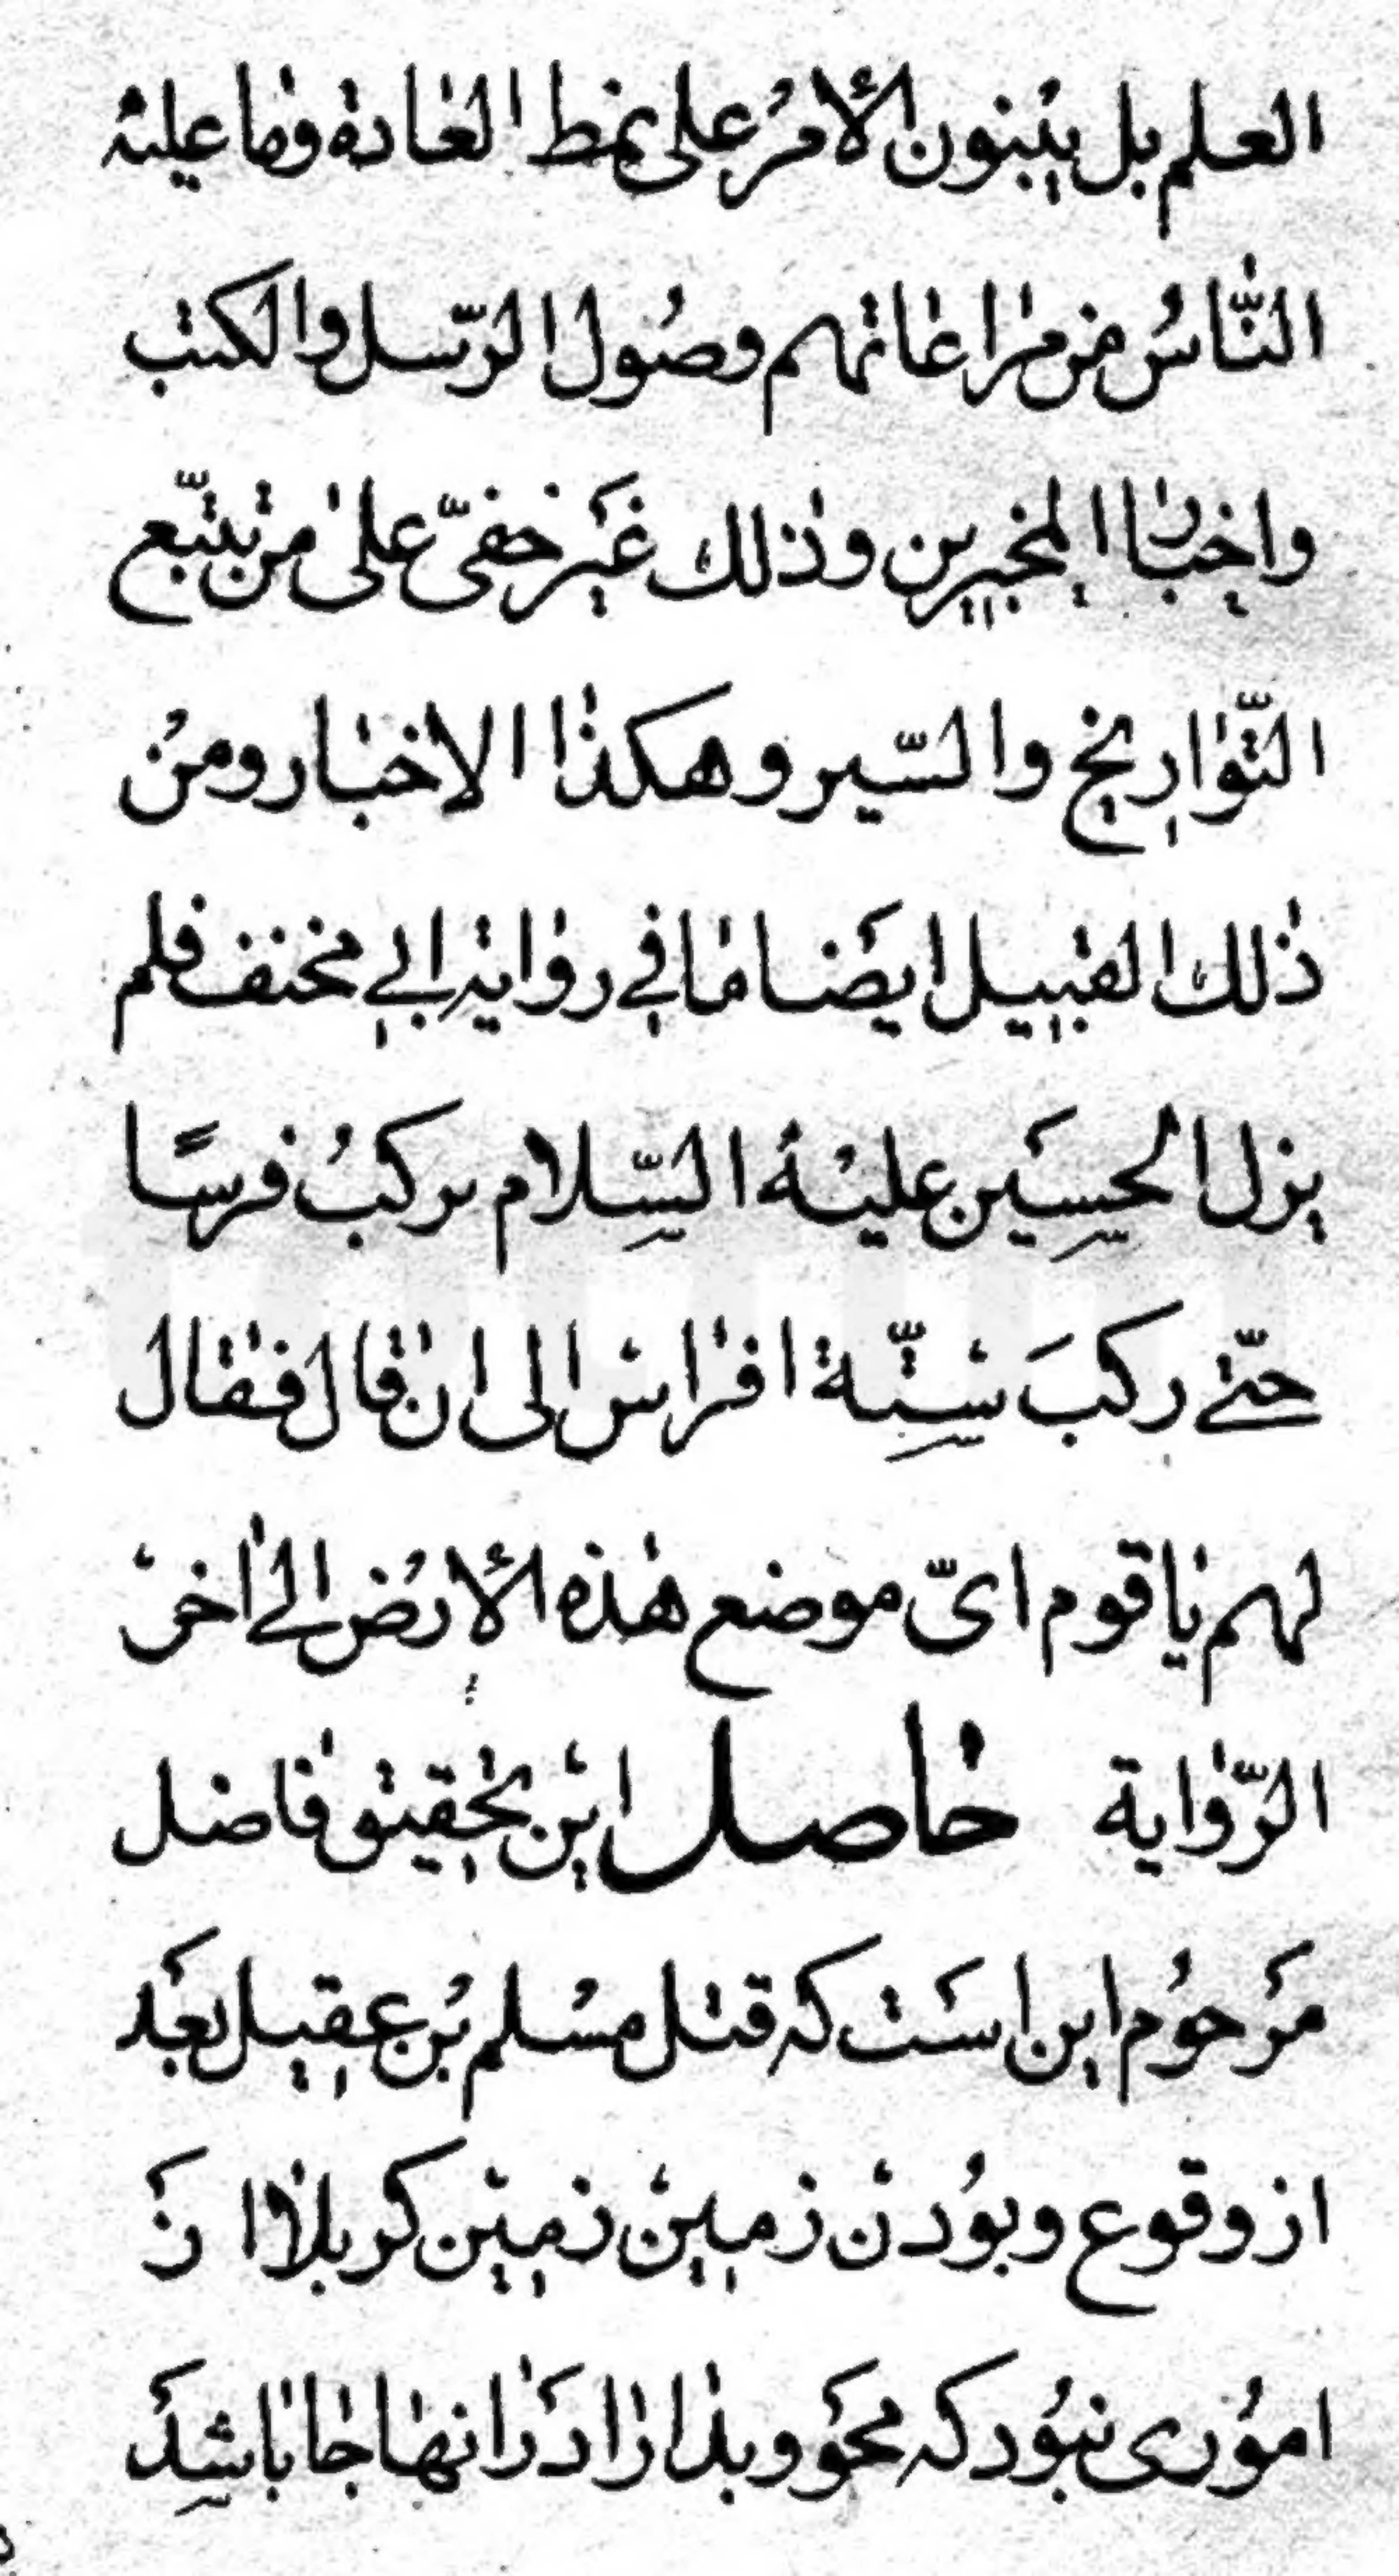 العلم بل يبنون الأمر على نمط العادة وما عليه
النّاسُ من مراعاتهم وصُول الرّسل والكتب
واخبار المخبرين وذلك غير خفىّ على من تتبّع
التّواريخ والسّير وهكذا الاخبار ومن
ذلك القبيل ايضا ما في رواية ابي مخنف فلم
يزل الحسين عليه السّلام يركبُ فرسًا
حتّى ركبَ ستّة افراس الى ان قال فقال
لهم يا قوم اىّ موضع هذه الأرض الى اخر
الرّواية حاصل اين تحقيق فاضل
مرحوم اين است كه قتل مسلم بن عقيل بعد
از وقوع وبودن زمين زمين كربلا از
امورى نبود كه محو وبدا را در انها جا باشد